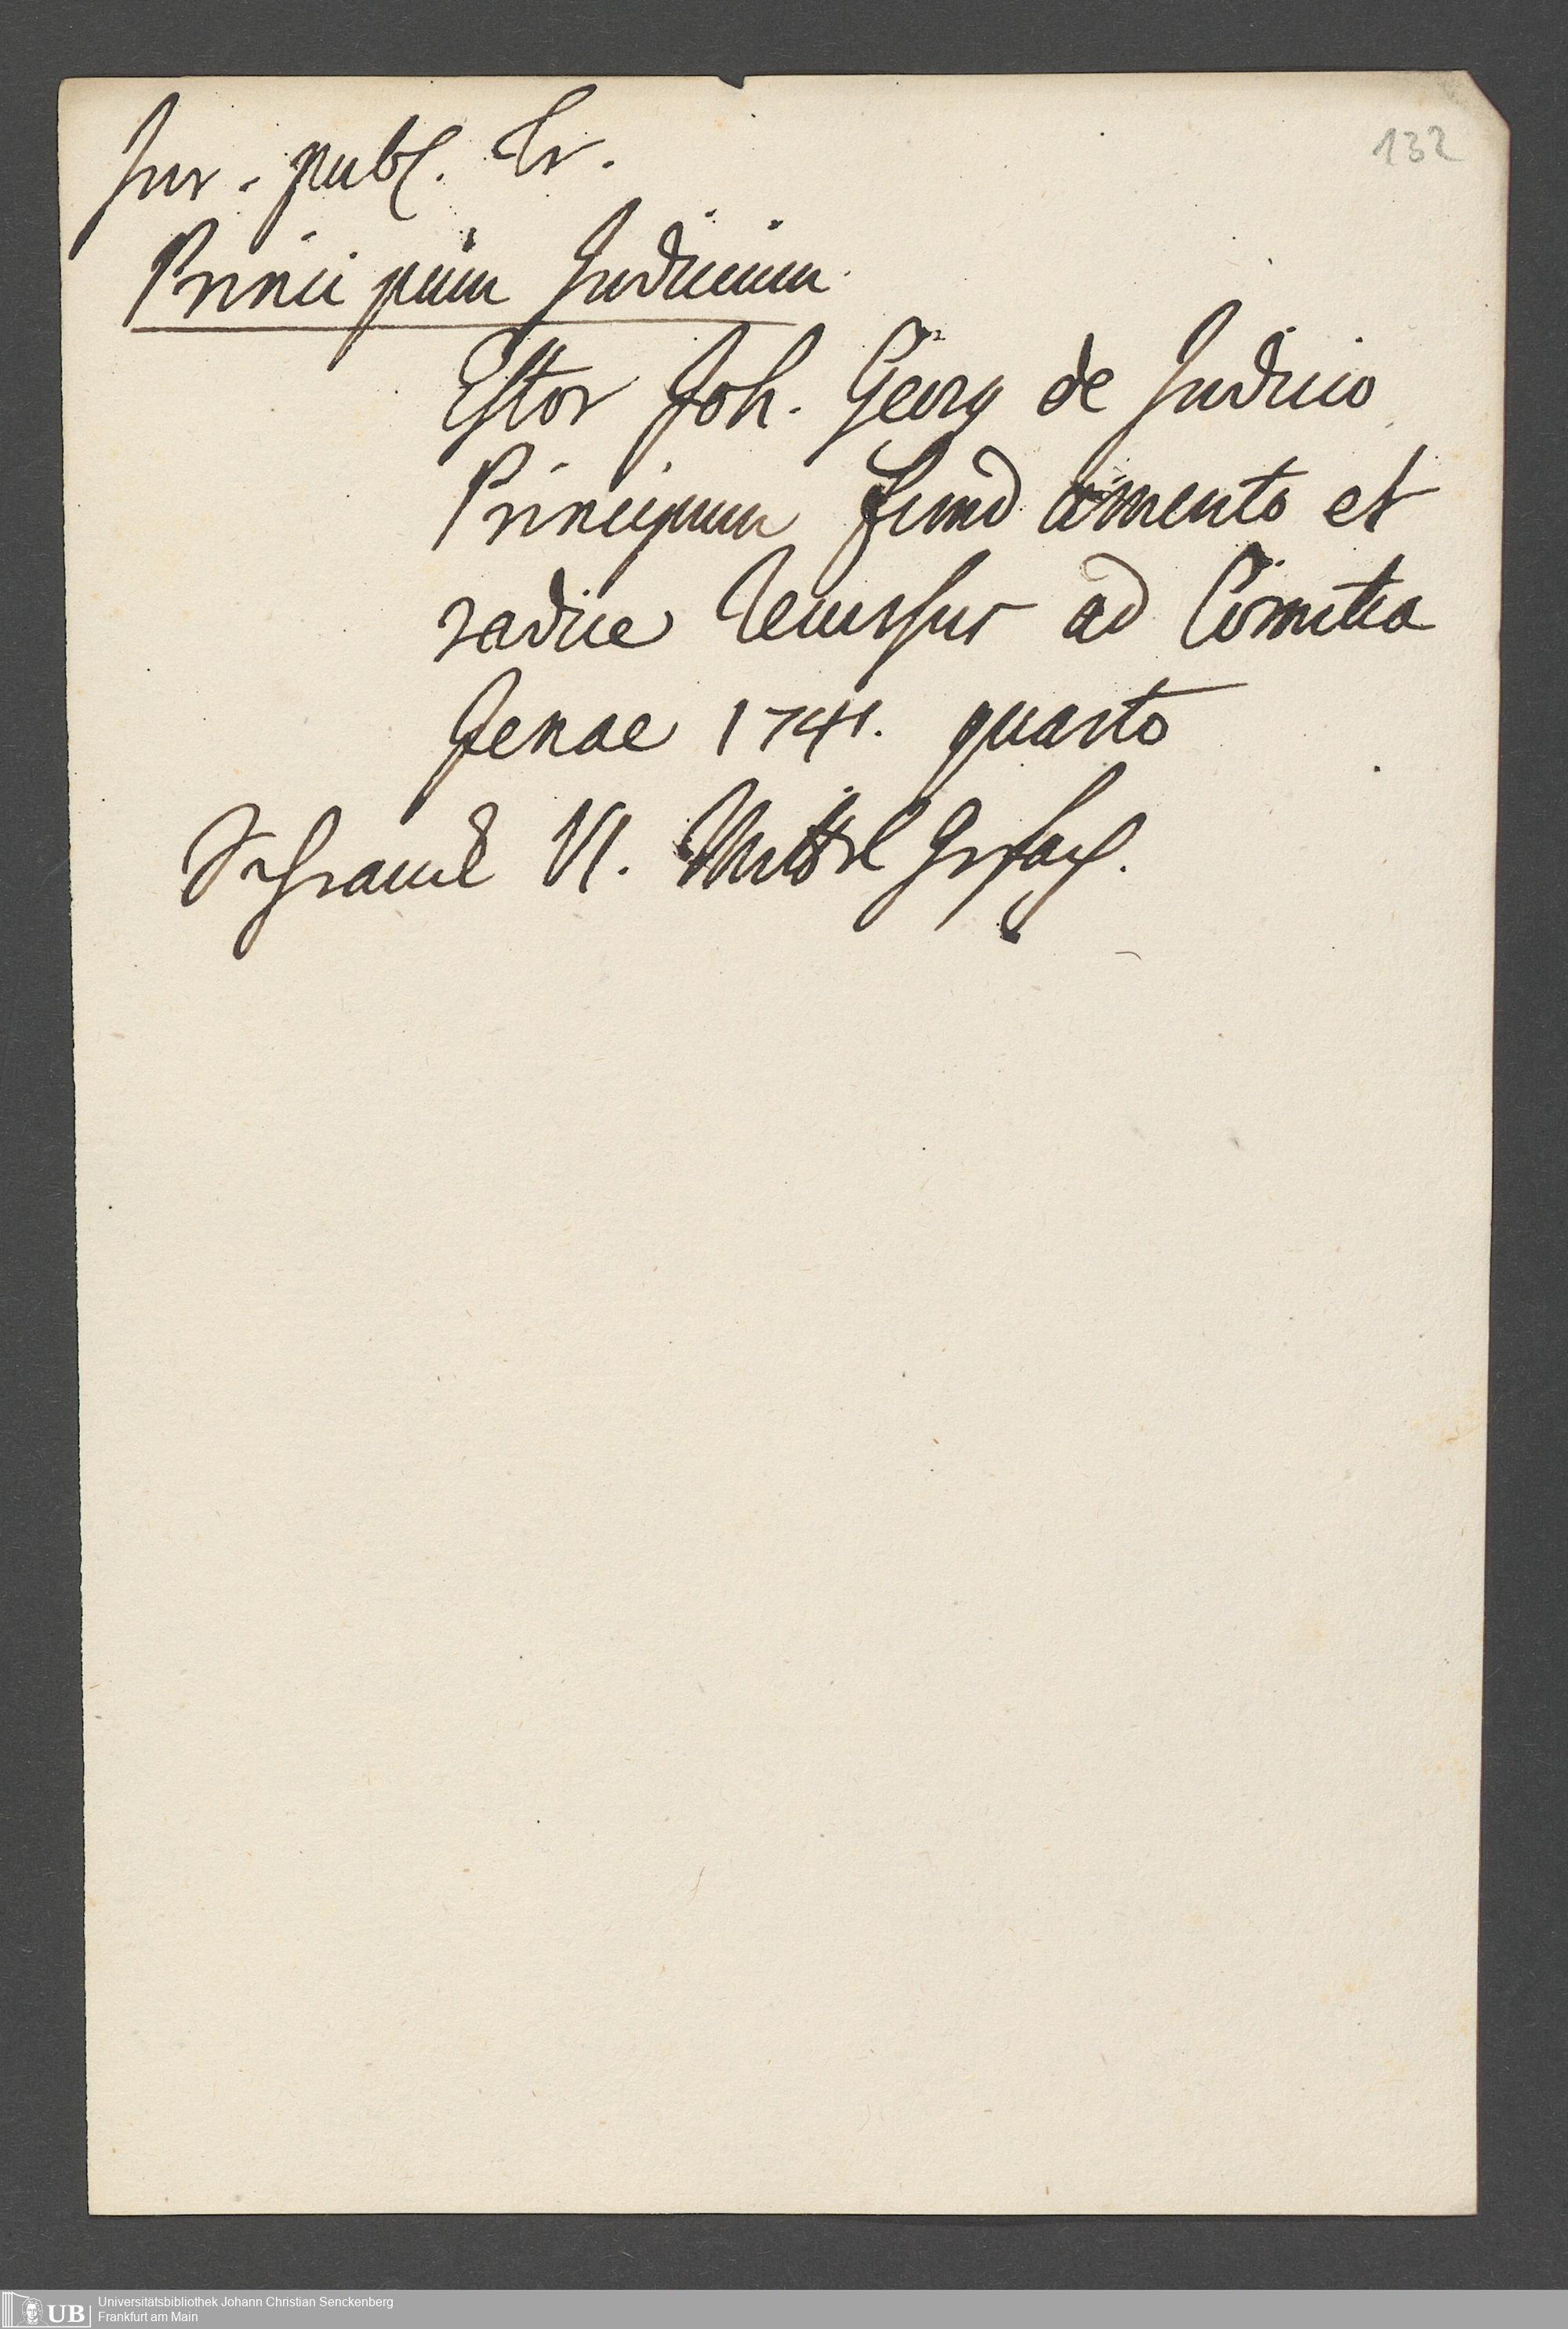 132
Jur. publ. Tr.
Principum Judicium.
Estor Joh. Georg de Judicio
Principum fundamento et
radice recursus ad Comitia
Jenae 1741. quarto
Schranck VI. Mittel
Universitätsbibliothek Johann Christian Senckenberg
Frankfurt am Main
UB